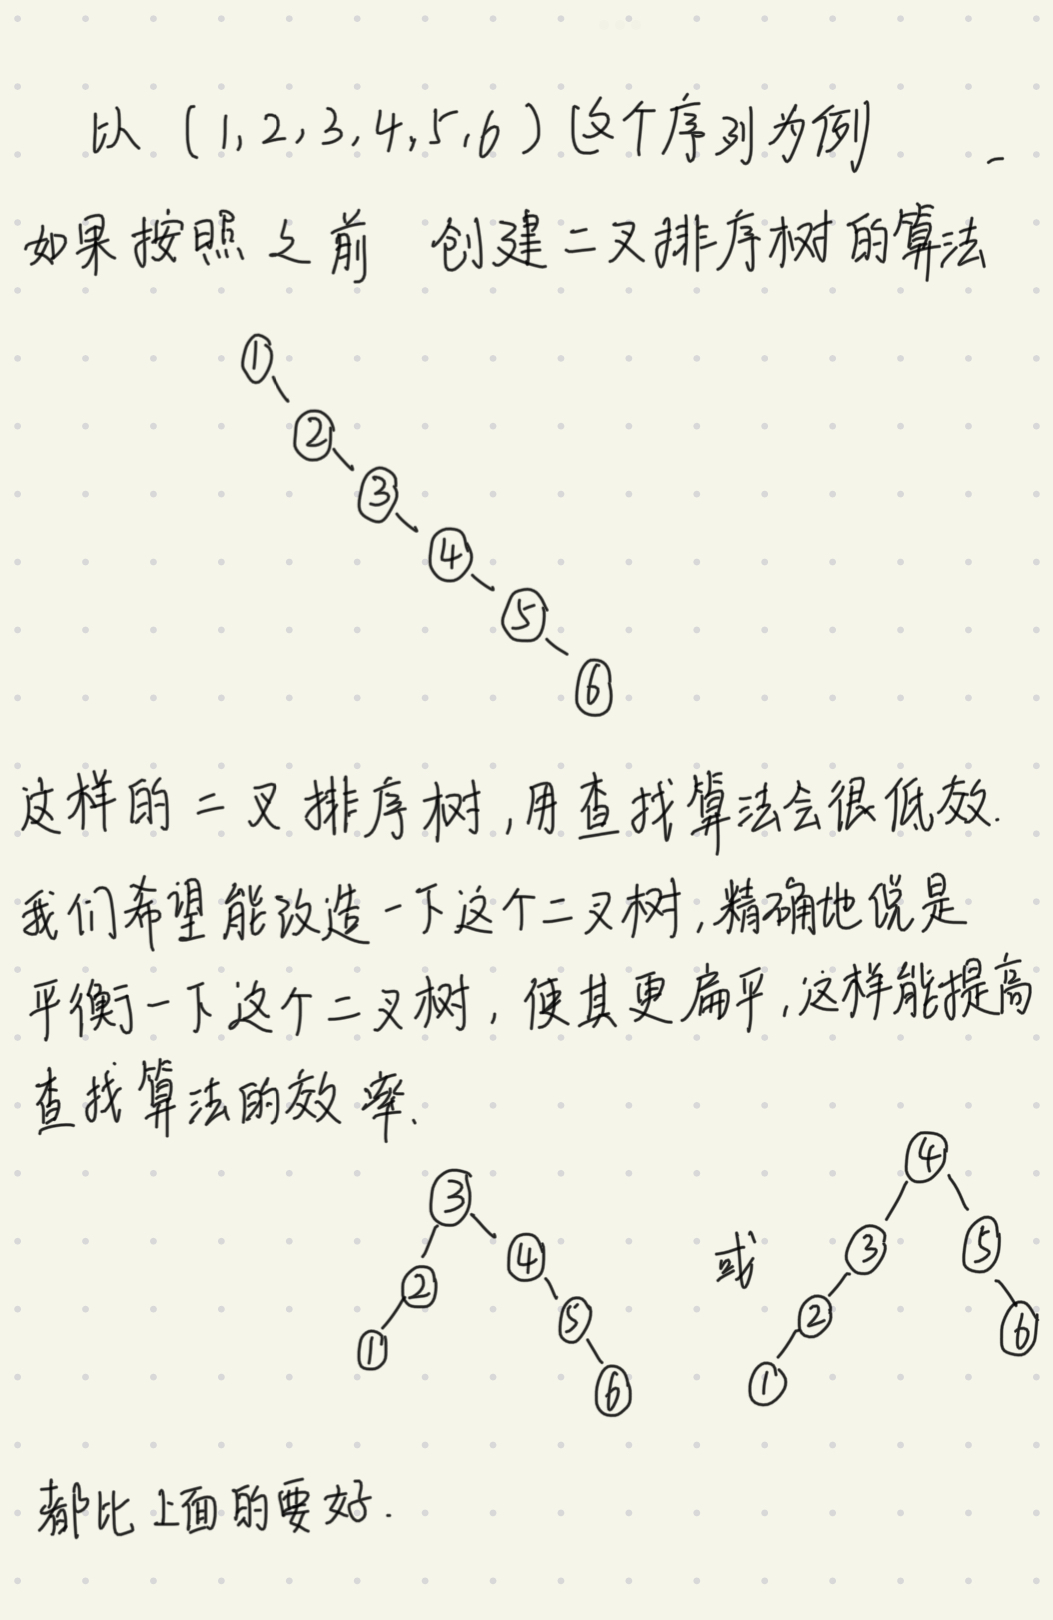 以 (1,2,3,4,5,6) 这个序列为例
如果按照之前 创建二叉排序树的算法
1
2
3
4
5
6
这样的二叉排序树,用查找算法会很低效.
我们希望能改造一下这个二叉树,精确地说是
平衡一下这个二叉树,使其更扁平,这样能提高
查找算法的效率.
3
2 4
1 5
6
或
4
3 5
2 6
1
都比上面的要好.